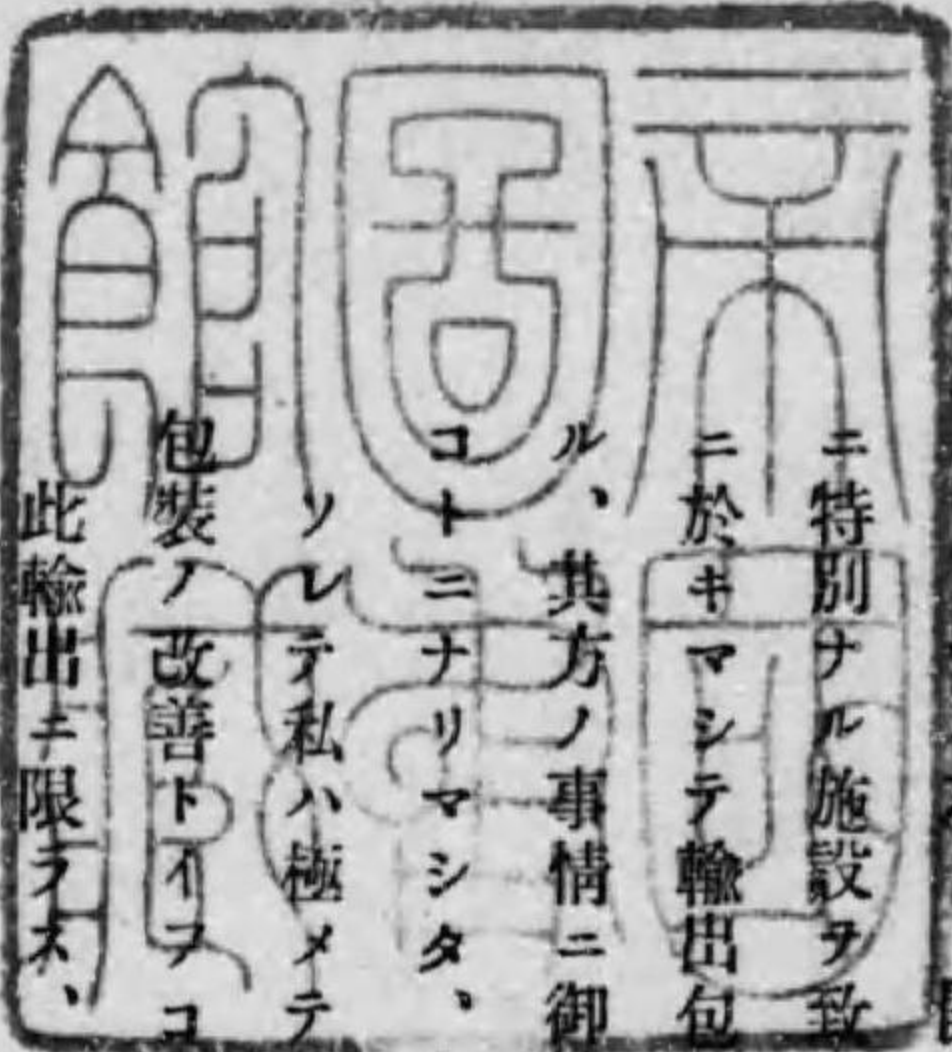 帝國
圖書
館藏
ニ特別ナル施設ヲ致
ニ於キマシテ輸出包
ル、其方ノ事情ニ御
コトニナリマシタ、
ソレテ私ハ極メテ
包裝ノ改善トイフコ
此輸出ニ限ラス、